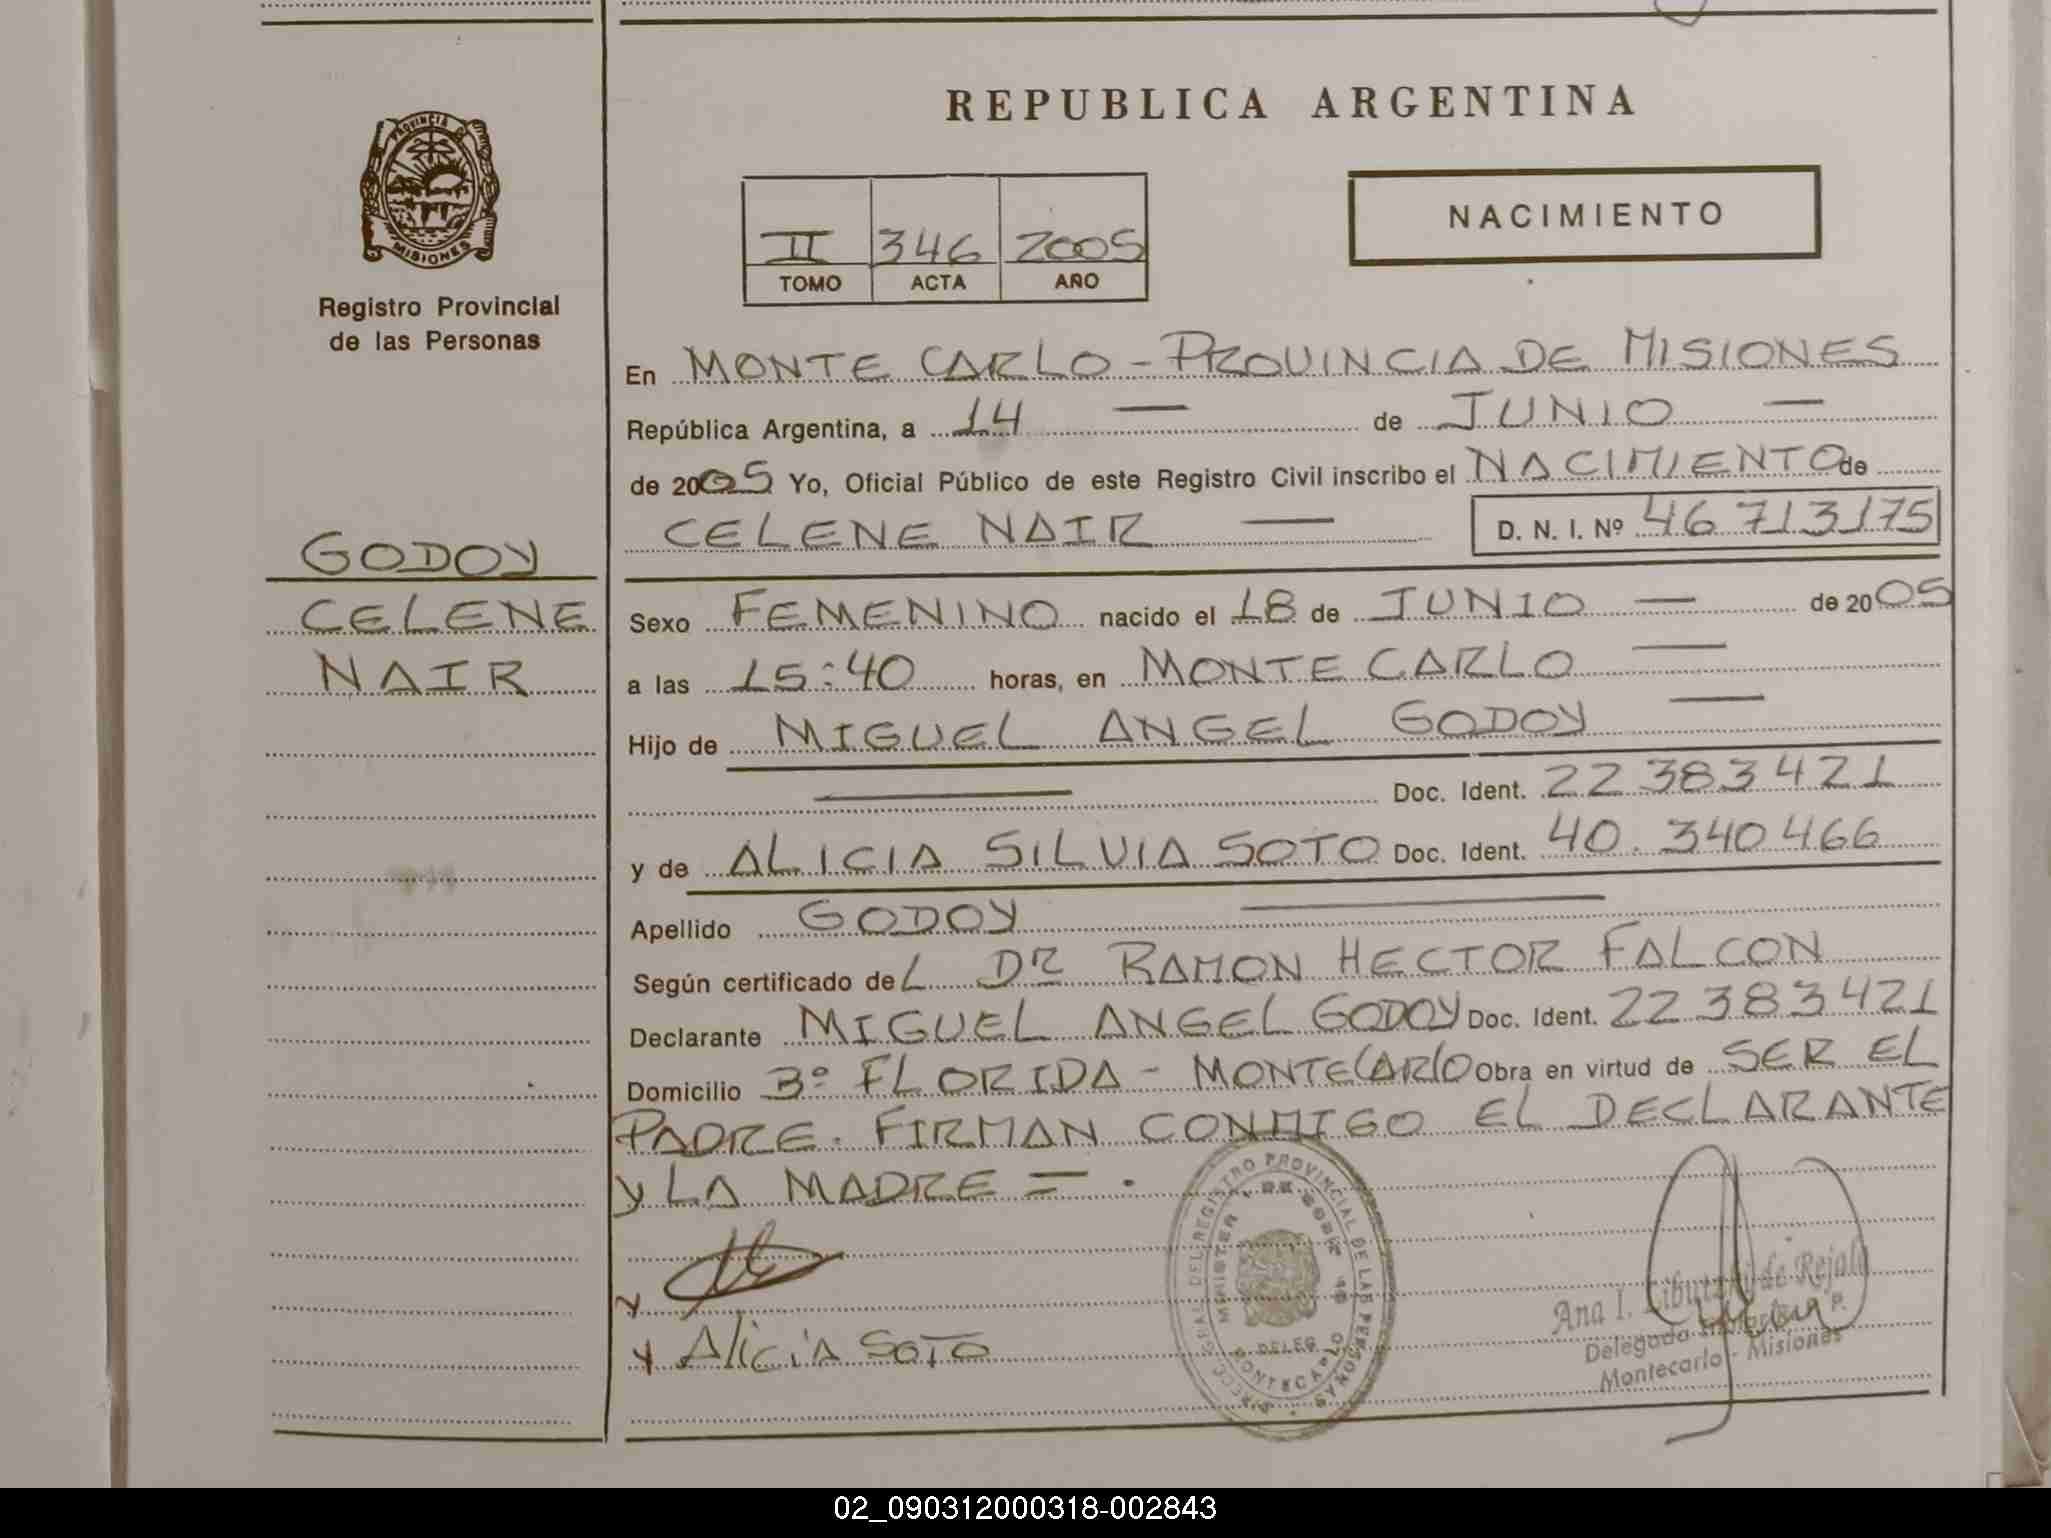 REPUBLICA ARGENTINA
PROVINCIA DE
MISIONES
Registro Provincial
de las Personas
II 346 2005
TOMO ACTA AÑO
NACIMIENTO
En MONTE CARLO - PROVINCIA DE MISIONES
República Argentina, a 14 — de JUNIO —
de 2005 Yo, Oficial Público de este Registro Civil inscribo el NACIMIENTO de
CELENE NAIR — D. N. I. Nº 46 713175
GODOY
CELENE
NAIR
Sexo FEMENINO nacido el 18 de JUNIO — de 2005
a las 15:40 horas, en MONTE CARLO —
Hijo de MIGUEL ANGEL GODOY —
— Doc. Ident. 22 383421
y de ALICIA SILVIA SOTO Doc. Ident. 40. 340466
Apellido GODOY —
Según certificado deL DR RAMON HECTOR FALCON
Declarante MIGUEL ANGEL GODOY Doc. Ident. 22 383421
Domicilio 3º FLORIDA - MONTECARLO Obra en virtud de SER EL
PADRE. FIRMAN CONMIGO EL DECLARANTE
y LA MADRE = .
Alicia SOTO
REGISTRO PROVINCIAL DE LAS PERSONAS
DELEG
MONTECARLO
Ana I. de Rejala
Delegada
Montecarlo - Misiones
02_090312000318-002843